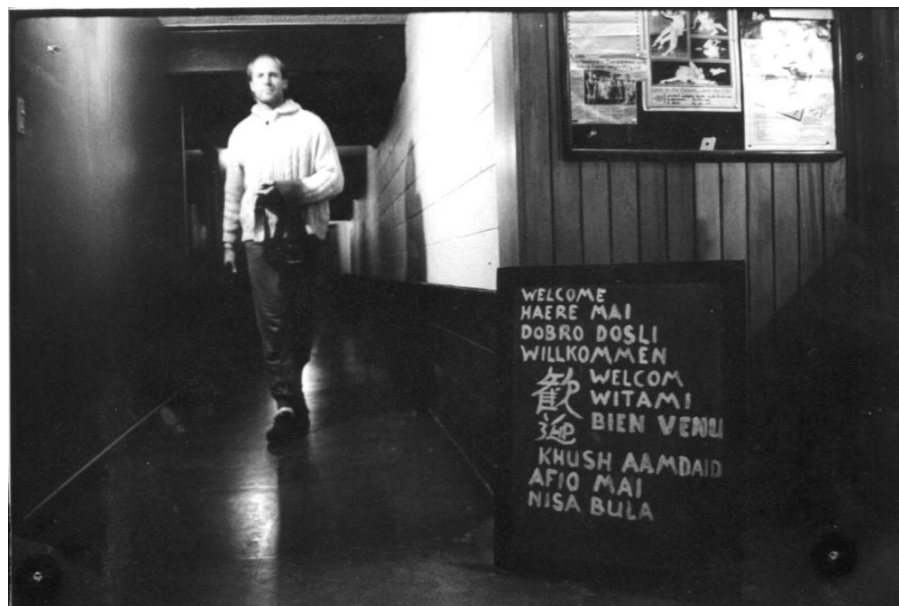 WELCOME
HAERE MAI
DOBRO DOSLI
WILLKOMMEN
歡迎
WELCOM
WITAMI
BIEN VENU
KHUSH AAMDAID
AFIO MAI
NISA BULA